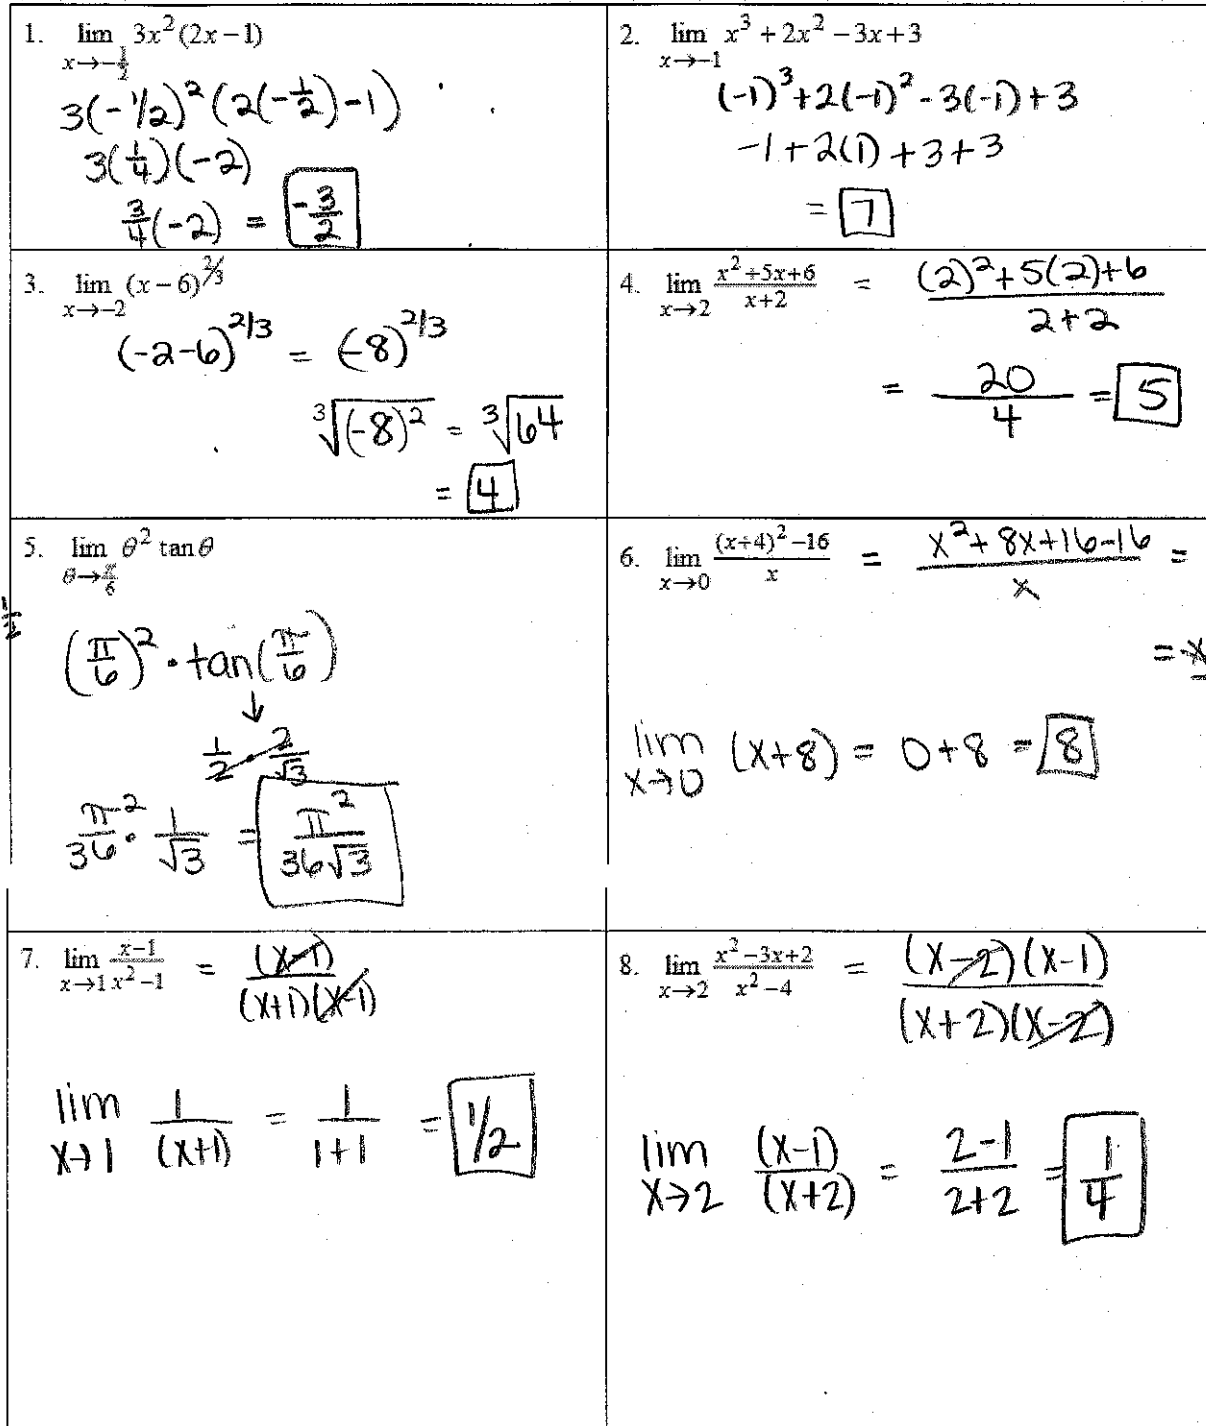 1. lim 3x²(2x−1)
x→−1/2
3(-1/2)² (2(-1/2)-1)
3(1/4)(-2)
3/4(-2) = -3/2
2. lim x³ + 2x² − 3x + 3
x→−1
(-1)³+2(-1)²-3(-1)+3
-1+2(1)+3+3
= 7
3. lim (x−6)^2/3
x→−2
(-2-6)^2/3 = (-8)^2/3
³√(-8)² = ³√64
= 4
4. lim x²+5x+6 / x+2 = (2)²+5(2)+6 / 2+2
x→2
= 20/4 = 5
5. lim θ² tan θ
θ→π/6
(π/6)² · tan(π/6)
↓
1/2 · 2/√3
π²/36 · 1/√3 = π²/36√3
6. lim (x+4)²−16 / x = x²+8x+16-16 / x =
x→0
= x
lim (x+8) = 0+8 = 8
x→0
7. lim x−1 / x²−1 = (x-1) / (x+1)(x-1)
x→1
lim 1/(x+1) = 1/1+1 = 1/2
x→1
8. lim x²−3x+2 / x²−4 = (x-2)(x-1) / (x+2)(x-2)
x→2
lim (x-1)/(x+2) = 2-1/2+2 = 1/4
x→2